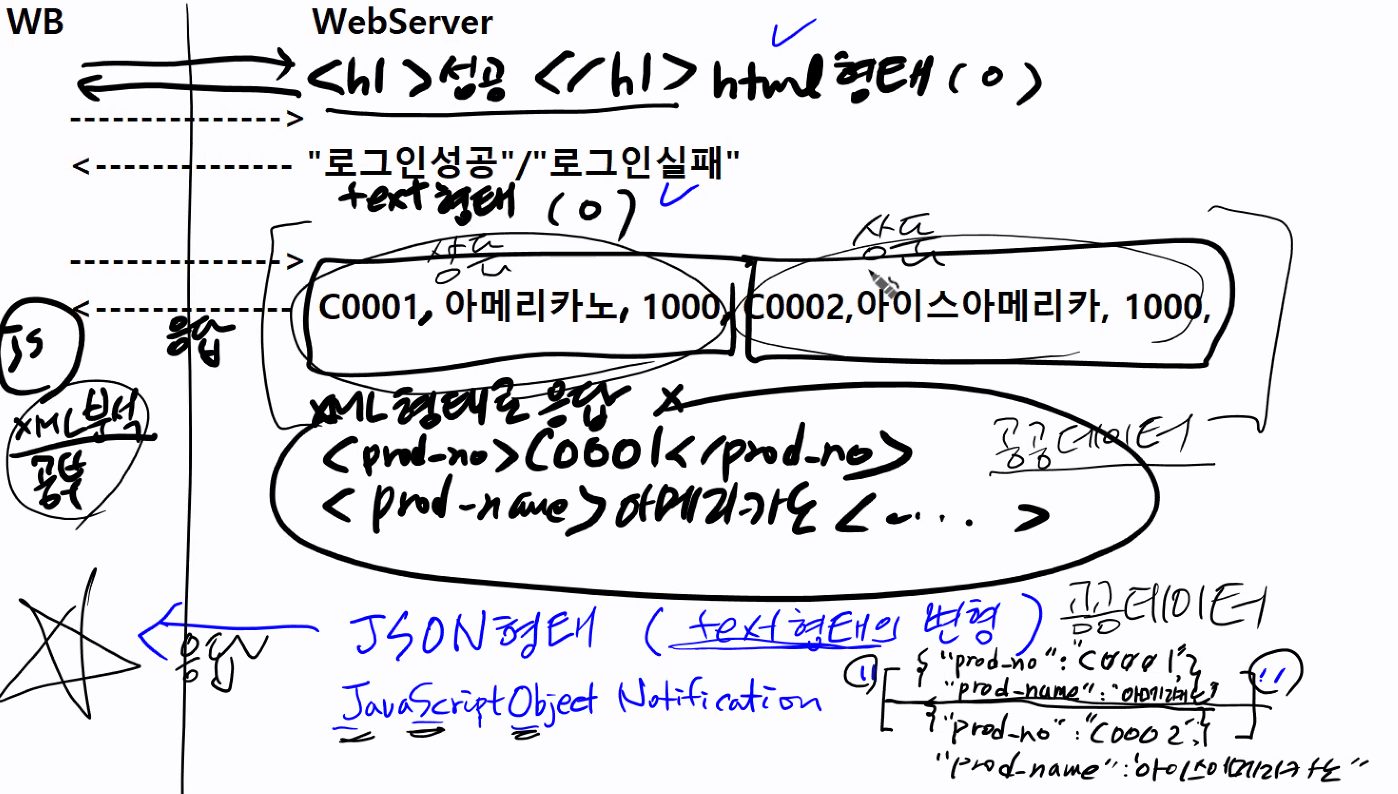 WB WebServer
<h1>성공 </h1> html 형태 (O)
--------------->
<-------------- "로그인성공"/"로그인실패"
text형태 (O)
상품 상품
--------------->
<-------------- C0001, 아메리카노, 1000, C0002,아이스아메리카, 1000,
JS 응답
XML형태로 응답 X
XML분석 <prod-no>C0001</prod-no> 공공데이터
<prod-name>아메리카노<-... >
JSON형태 (text형태의 변형) 공공데이터
응답
JavaScriptObject Notification
" [ {"prod-no":"C0001", } "
"prod-name":"아메리카노"
{"prod-no":"C0002",}
"prod-name":아이스아메리카노"